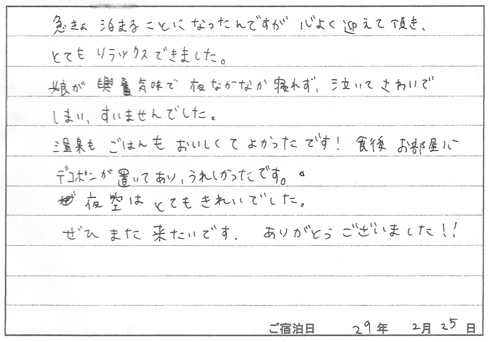 急きょ 泊まることになったんですが 心よく迎えて頂き、
とてもリラックスできました。
娘が 興奮気味で 夜なかなか寝れず、泣いてさわいで
しまい、すいませんでした。
温泉も ごはんも おいしくて よかったです! 食後 お部屋に
デコポンが置いてあり、うれしかったです。
夜空は とてもきれいでした。
ぜひ また 来たいです. ありがとう ございました!!
ご宿泊日 29年 2月 25日